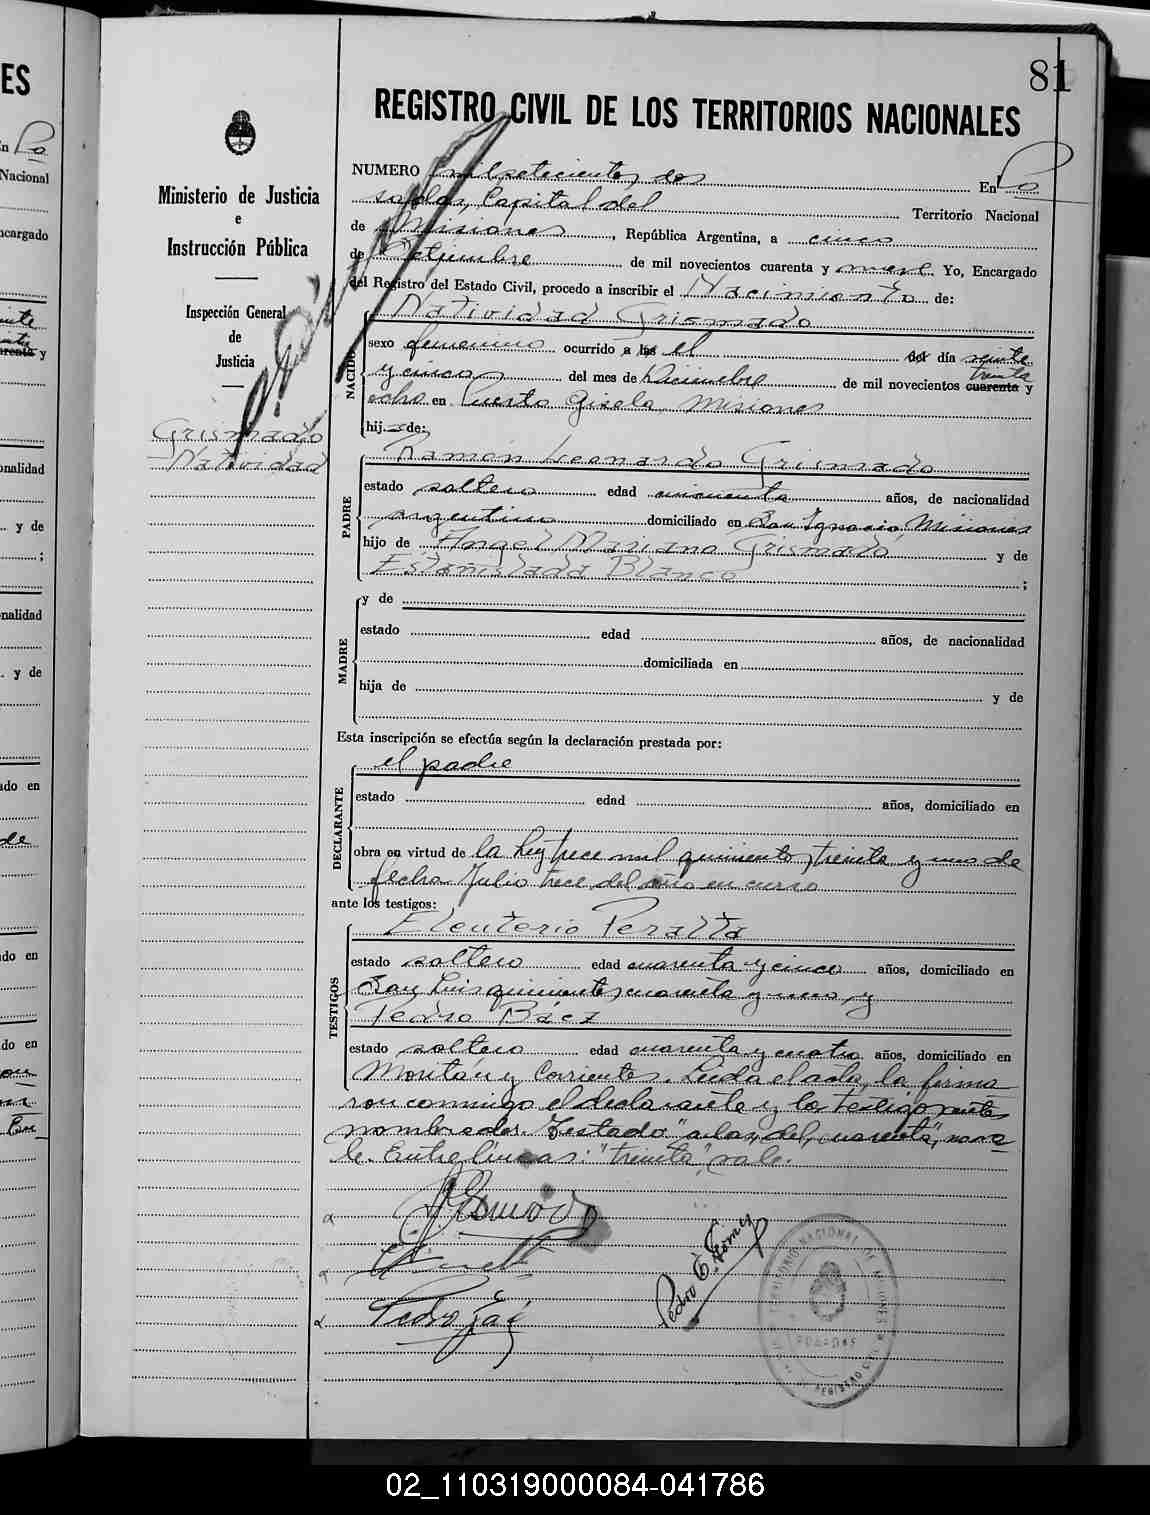 81
REGISTRO CIVIL DE LOS TERRITORIOS NACIONALES
Ministerio de Justicia
e
Instrucción Pública
Inspección General
de
Justicia
Grismado
Natividad
NUMERO mil setecientos dos En Po
sadas, Capital del Territorio Nacional
de Misiones, República Argentina, a cinco
de Setiembre de mil novecientos cuarenta y nueve. Yo, Encargado
del Registro del Estado Civil, procedo a inscribir el Nacimiento de:
Natividad Grismado
NACIDO
sexo femenino ocurrido a las el del día veinte
y cinco del mes de Diciembre de mil novecientos cuarenta trenta y
ocho en Puerto Gisela, Misiones
hij de:
Ramón Leonardo Grismado
PADRE
estado soltero edad cincuenta años, de nacionalidad
argentino domiciliado en San Ignacio Misiones
hijo de Angel Mariano Grismado y de
Estanislada Blanco ;
MADRE
y de
estado edad años, de nacionalidad
domiciliada en
hija de y de
Esta inscripción se efectúa según la declaración prestada por:
el padre
DECLARANTE
estado edad años, domiciliado en
obra en virtud de la ley trece mil quinientos treinta y uno de
fecha Julio trece del año en curso
ante los testigos:
Eleuterio Peralta
TESTIGOS
estado soltero edad cuarenta y cinco años, domiciliado en
San Luis quinientos cuarenta y uno y
Pedro Báez
estado soltero edad cuarenta y cuatro años, domiciliado en
Moritán y Corrientes. Leída el acta, la firma
ron conmigo el declarante y los testigos
nombrados. Testado: "a las, del, cuarenta", no va
le. Entre líneas: "treinta", vale.
Pedro Báez
Pedro Gomez
ES
En Po
Nacional
ncargado
y
onalidad
y de
;
nalidad
y de
ado en
de
do en
do en
02_110319000084-041786